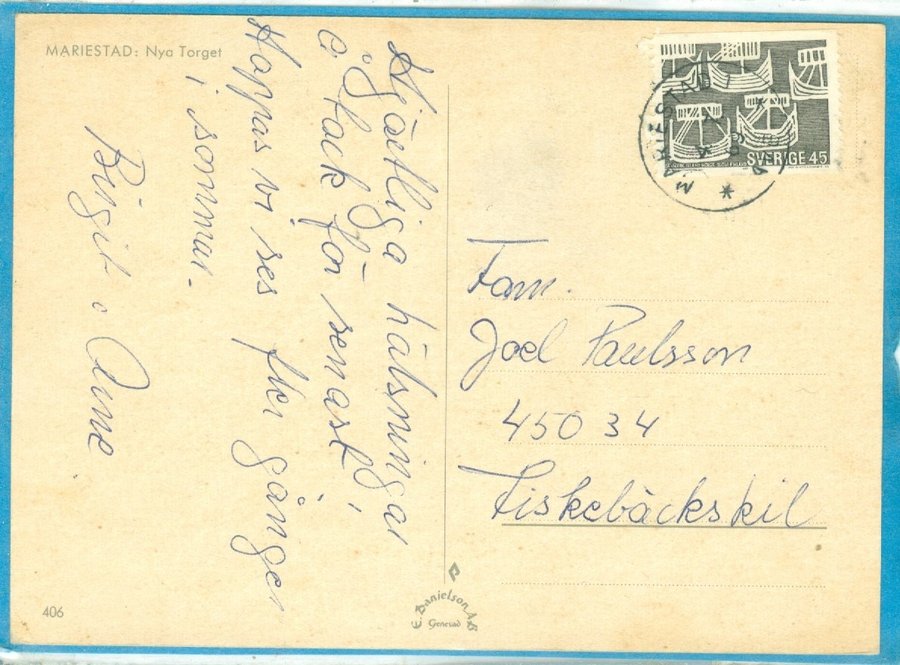 MARIESTAD: Nya Torget
Hjärtliga hälsningar
o Tack för senast!
Hoppas vi ses fler gånger
i sommar.
Birgit o Arne
MARIESTAD 1
SVERIGE 45
Fam.
Joel Paulsson
450 34
Fiskebäckskil
406
E. Danielson A.B.
Grenestad